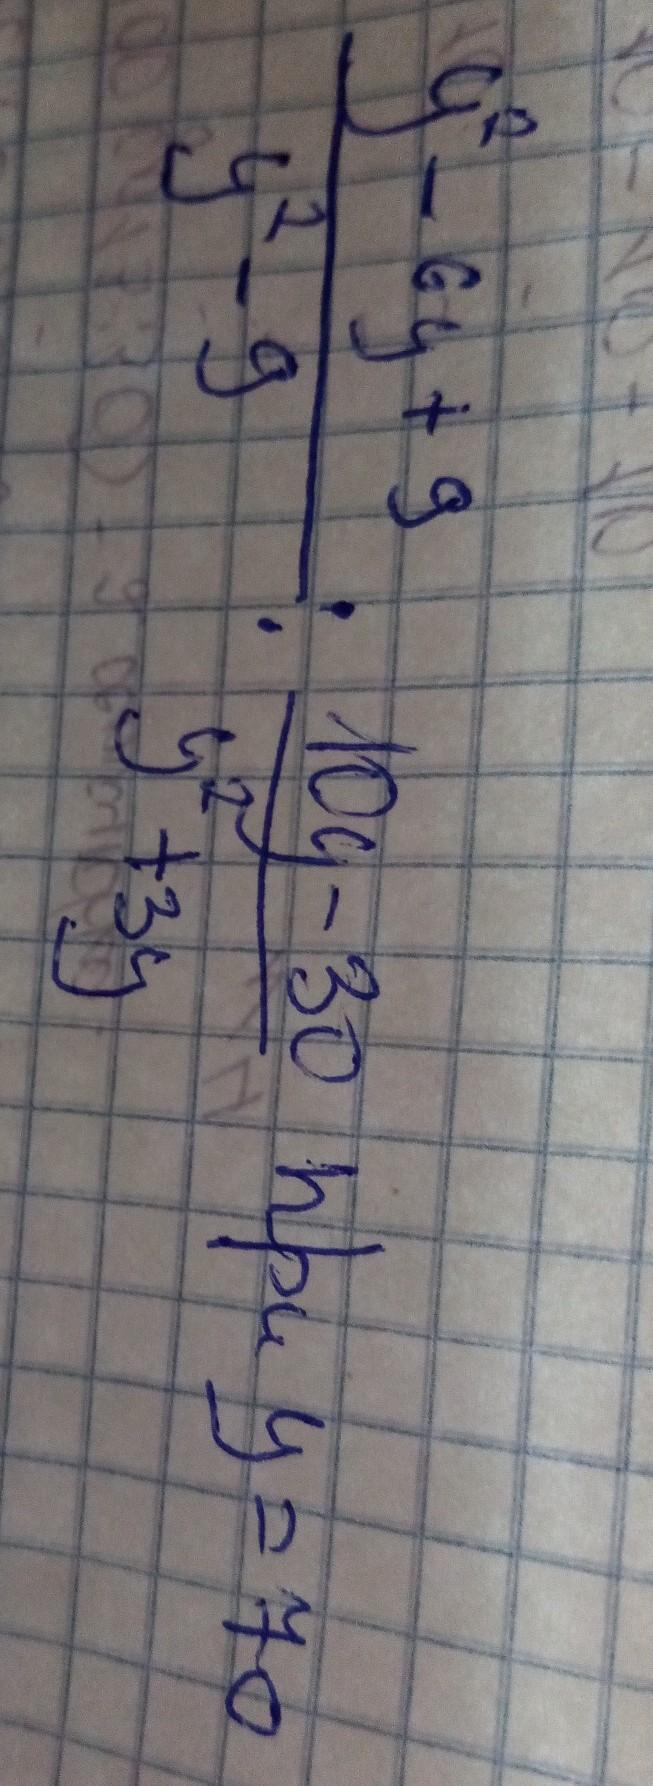 y² - 6y + 9 / y² - 9 : 10y - 30 / y² + 3y при y = 70